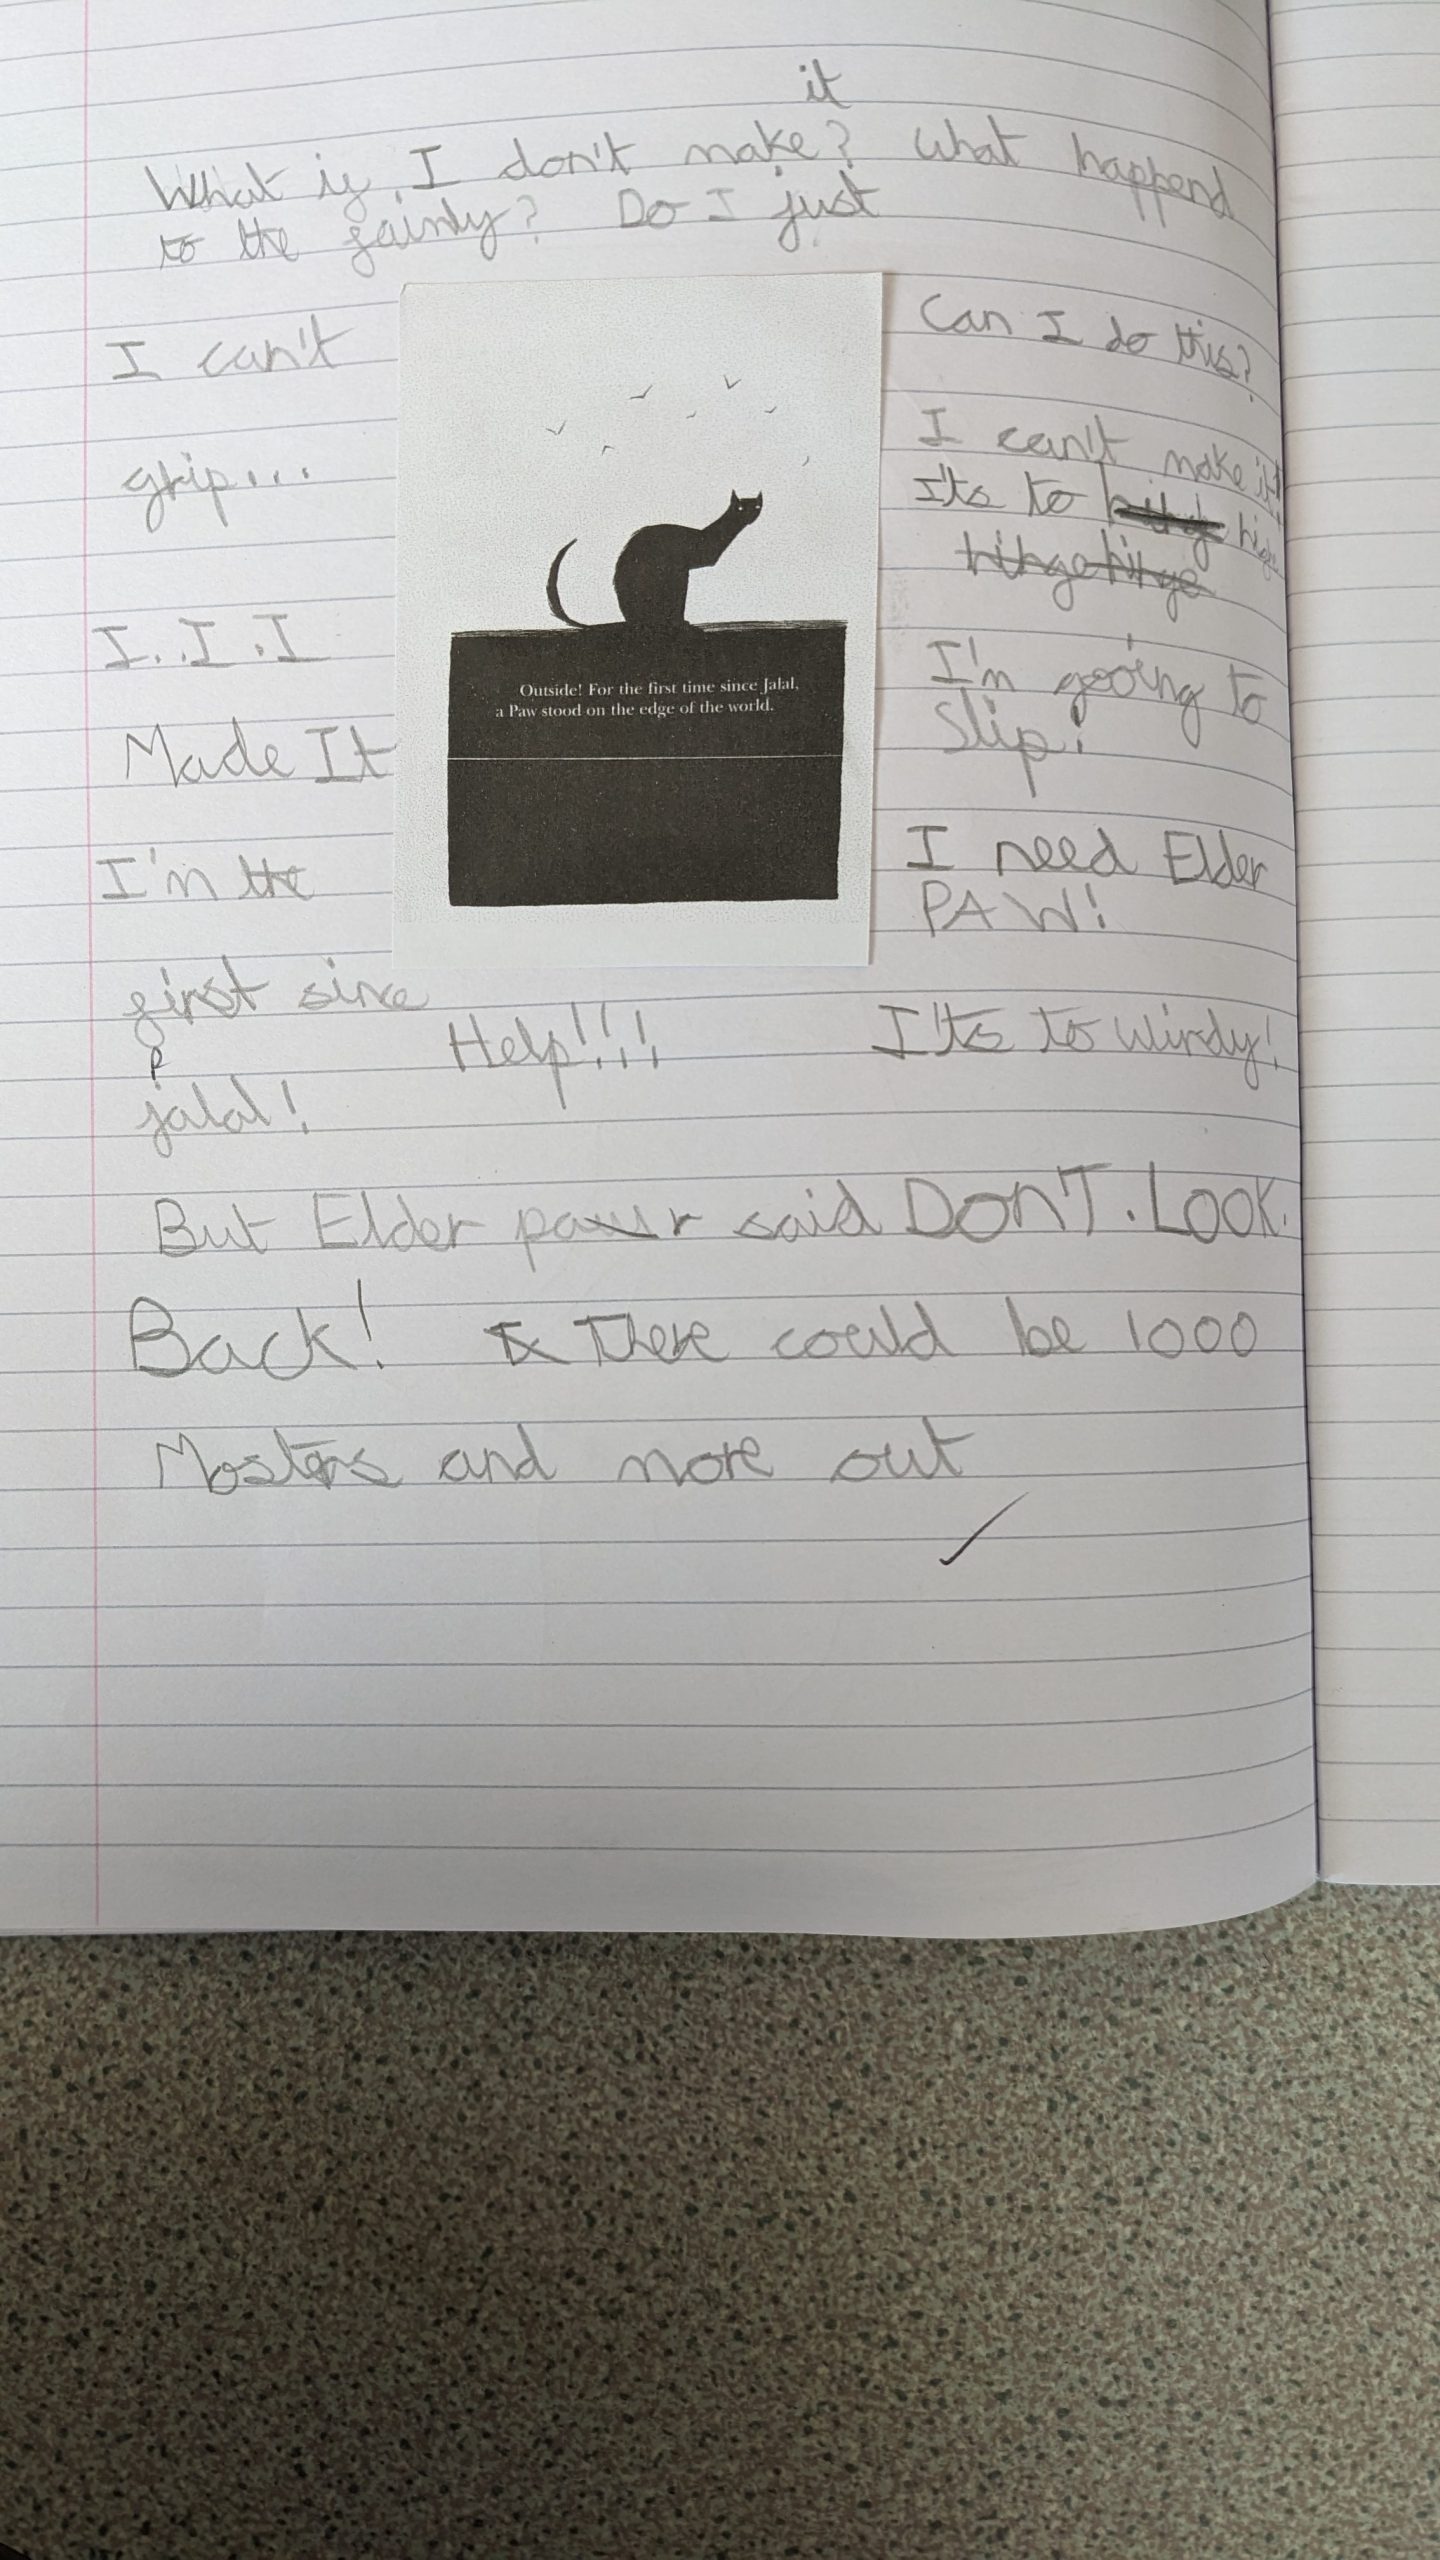 it
What if I don't make? what happend
to the faimly? Do I just
I can't
grip...
I..I.I
Made It
I'm the
first since
jalal!
Outside! For the first time since Jalal,
a Paw stood on the edge of the world.
Can I do this?
I can't make it!
I'ts to high
I'm gooing to
Slip!
I need Elder
PAW!
Help!!!!
I'ts to windy!
But Elder pawr said DON'T. LOOK.
Back! There could be 1000
Mosters and more out